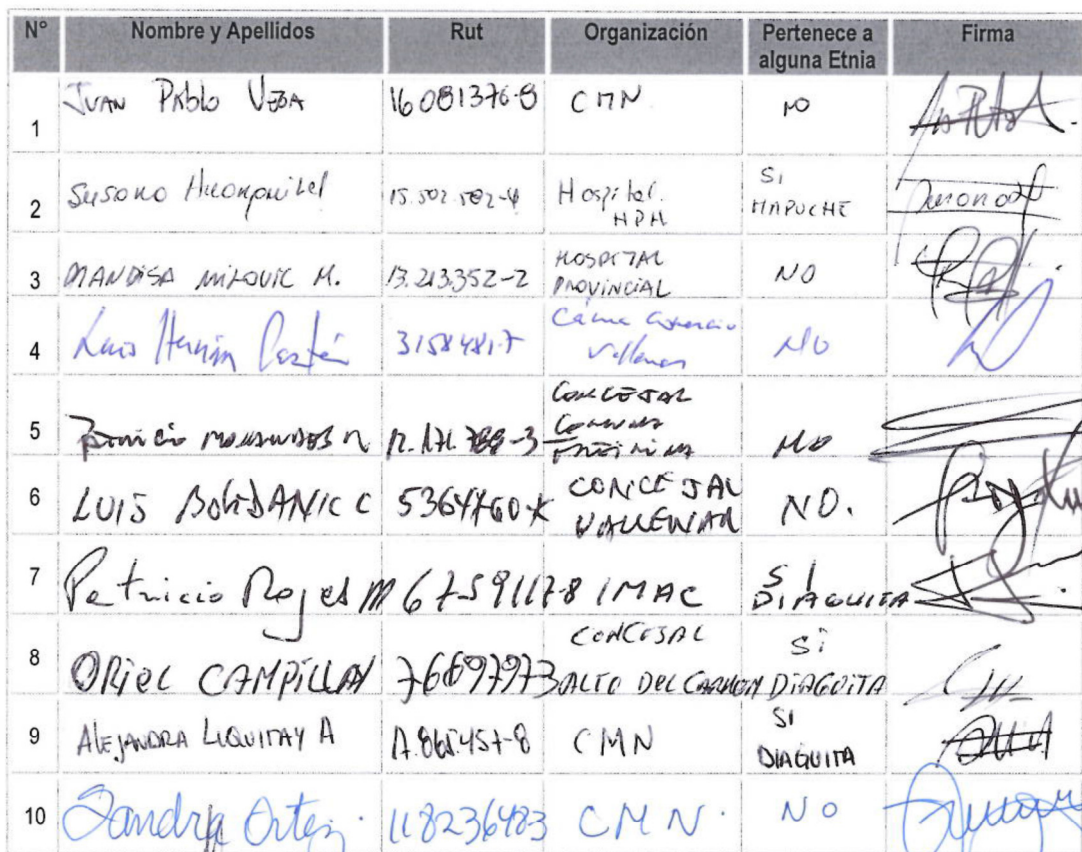 N° Nombre y Apellidos Rut Organización Pertenece a alguna Etnia Firma
1 JUAN PABLO VEGA 16081376-8 CMN NO
2 Susana 15.502.502-4 Hospital HPH SI MAPUCHE
3 MANDISA MILOVIC M. 13.213.352-2 HOSPITAL PROVINCIAL NO
4 Luis Hernán 3158481-7 Comercio Vallenar NO
5 CONCEJAL NO
6 LUIS BOGDANIC C 5364760-K CONCEJAL VALLENAR NO.
7 Patricio Rojas M 6759117-8 IMAC SI DIAGUITA
8 ORIEL CAMPILLAY 76697973 CONCEJAL ALTO DEL CARMEN Si DIAGUITA
9 ALEJANDRA LIQUITAY A 17.865.457-8 CMN SI DIAGUITA
10 Sandra 118236483 CMN. NO